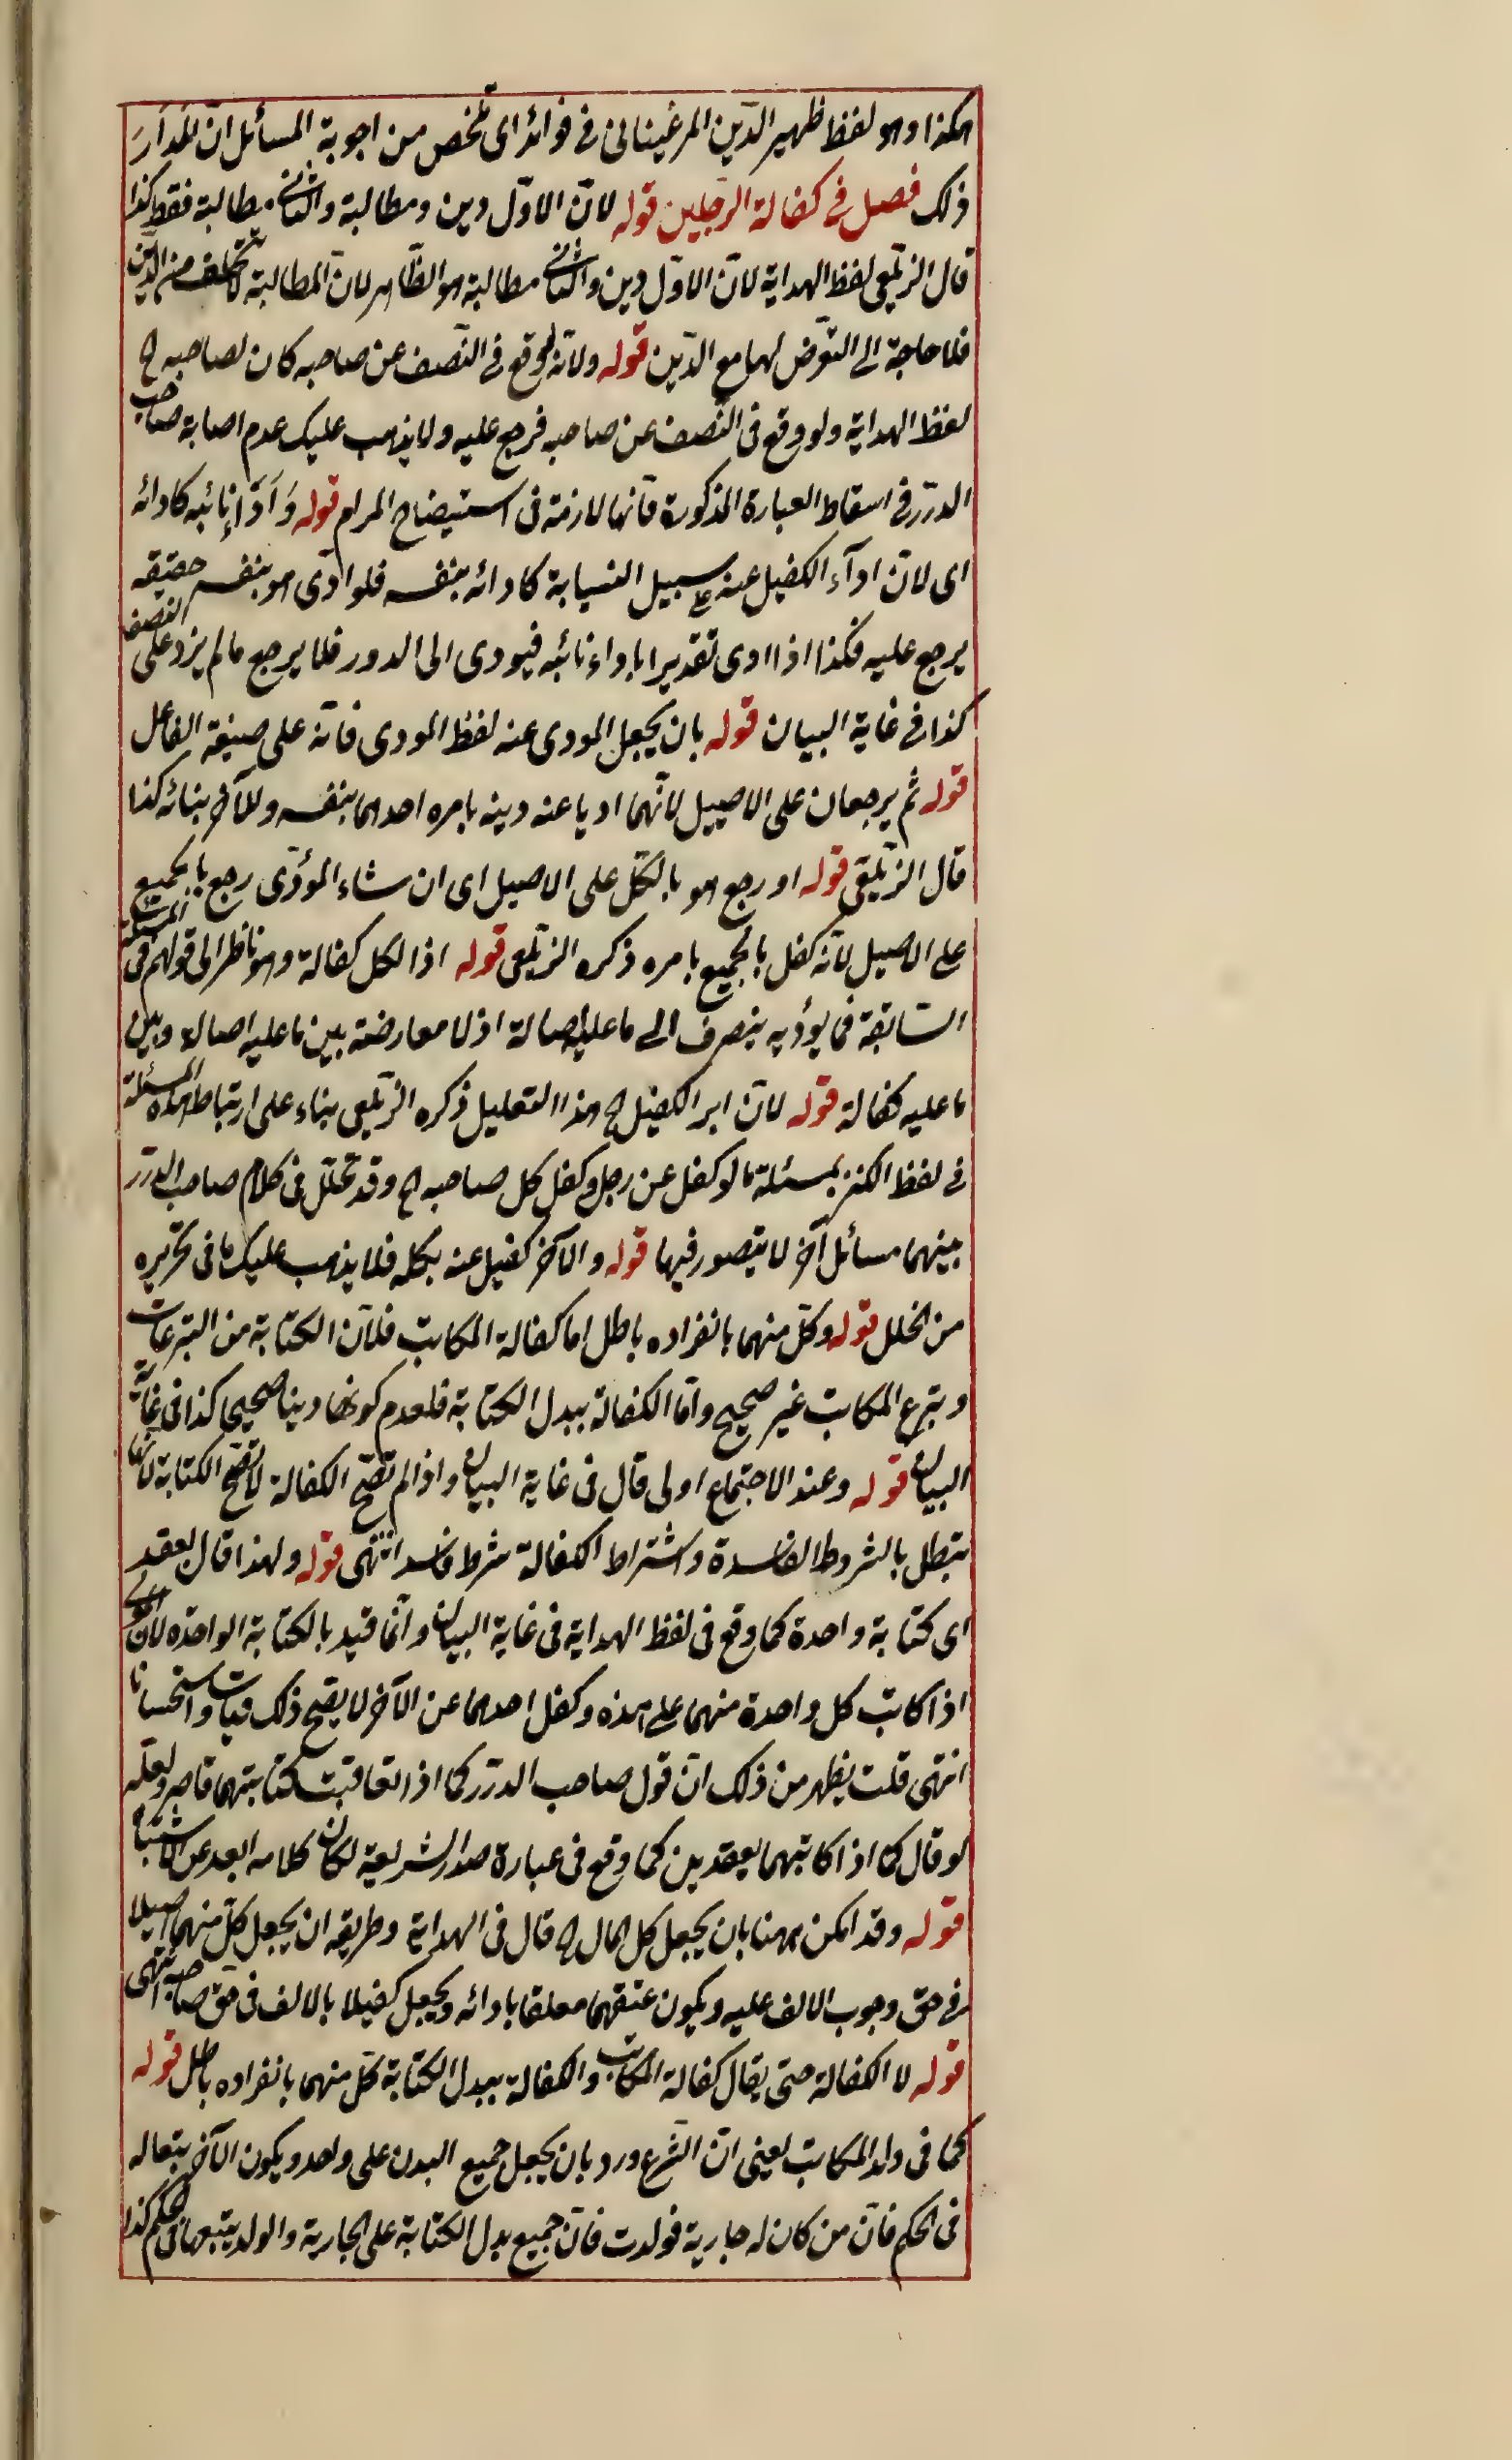 هكذا وهو لفظ ظهير الدّين المرغينانى فى فوائد اى تلخص من اجوبة المسائل انّ المدار
ذلك فصل فى كفالة الرّجلين قوله لانّ الاوّل دين ومطالبة والثانى مطالبة فقط كذا
قال الزيلعى لفظ الهداية لانّ الاوّل دين والثانى مطالبة هو الظّاهر لانّ المطالبة لا تختلف من الدّين
فلا حاجة الى التعرّض لها مع الدّين قوله ولانّه لو وقع فى النّصف عن صاحبه كان لصاحبه الخ
لفظ الهداية ولو وقع فى النّصف عن صاحبه فرجع عليه ولا يذهب عليك عدم اصابة صاحب
الدرر فى اسقاط العبارة المذكورة فانّها لازمة فى استيضاح المرام قوله وَاَدَاء نائبه كادائه
اى لانّ ادآء الكفيل عنه على سبيل النيابة كادائه بنفسه فلو ادّى هو بنفسه حقيقه
يرجع عليه فكذا اذا ادى تقديرا باداء نائبه فيودى الى الدور فلا يرجع مالم يزد على النصف
كذا فى غاية البيان قوله بان يجعل المودى عنه لفظ المودى فانّه على صيغة الفاعل
قوله ثم يرجعان على الاصيل لانّهما اديا عنه دينه بامره احدهما بنفسه والآخر بنائبه كذا
قال الزيلعى قوله او رجع هو بالكلّ على الاصيل اى ان شاء المؤدّى رجع بالجميع
على الاصيل لانّه كفل بالجميع بامره ذكره الزيلعى قوله اذ الكل كفالة وهو ناظر الى قولهم فى المسئلة
السّابقة فما يؤديه ينصرف الى ما عليه اصالة اذ لا معارضة بين ما عليه اصالة وبين
ما عليه كفالة قوله لانّ ابرا الكفيل الخ هذا التعليل ذكره الزيلعى بناء على ارتباط هذه المسئلة
فى لفظ الكنز بمسئلة ما لو كفل عن رجل وكفل كل صاحبه الخ وقد تخلّل فى كلام صاحب الدرر
بينهما مسائل آخر لا يتصور فيها قوله والآخر كفيل عنه بكله فلا يذهب عليك ما فى تحريره
من الخلل قوله وكلّ منهما بانفراده باطل اما كفالة المكاتب فلانّ الكتابة من التبرعات
وتبرع المكاتب غير صحيح وامّا الكفالة ببدل الكتابة فلعدم كونها دينا صحيحا كذا فى غاية
البيان قوله وعند الاجتماع اولى قال فى غاية البيان واذا لم تصحّ الكفالة لا تصحّ الكتابة لانّها
تبطل بالشروط الفاسدة واشتراط الكفالة شرط فاسد انتهى قوله ولهذا قال بعقد
اى كتابة واحدة كما وقع فى لفظ الهداية فى غاية البيان وانّما قيّد بالكتابة الواحده لانّ المولى
اذا كاتب كل واحدة منهما على حده وكفل احدهما عن الآخر لا يصحّ ذلك قياسا واستحسانا
انتهى قلت يظهر من ذلك انّ قول صاحب الدرر كما اذا تعاقبت كتابتهما قاصر ولعلّه
لو قال كما اذا كاتبهما بعقدين كما وقع فى عبارة صدر الشريعة لكان كلامه ابعد عن الاشتباه
قوله وقد امكن ههنا بان يجعل كل المال الخ قال فى الهداية وطريقه ان يجعل كلّ منهما اصيلا
فى حق وجوب الالف عليه ويكون عتقهما معلقا بادائه ويجعل كفيلا بالالف فى حقّ صاحبه انتهى
قوله لا الكفالة حتى يقال كفالة المكاتب والكفالة ببدل الكتابة كلّ منهما بانفراده باطل قوله
كما فى ولد المكاتب يعنى انّ الشّرع ورد بان يجعل جميع البدل على واحد ويكون الآخر تبعا له
فى الحكم فانّ من كان له جارية فولدت فانّ جميع بدل الكتابة على الجارية والولد يتبعها فى الحكم كذا